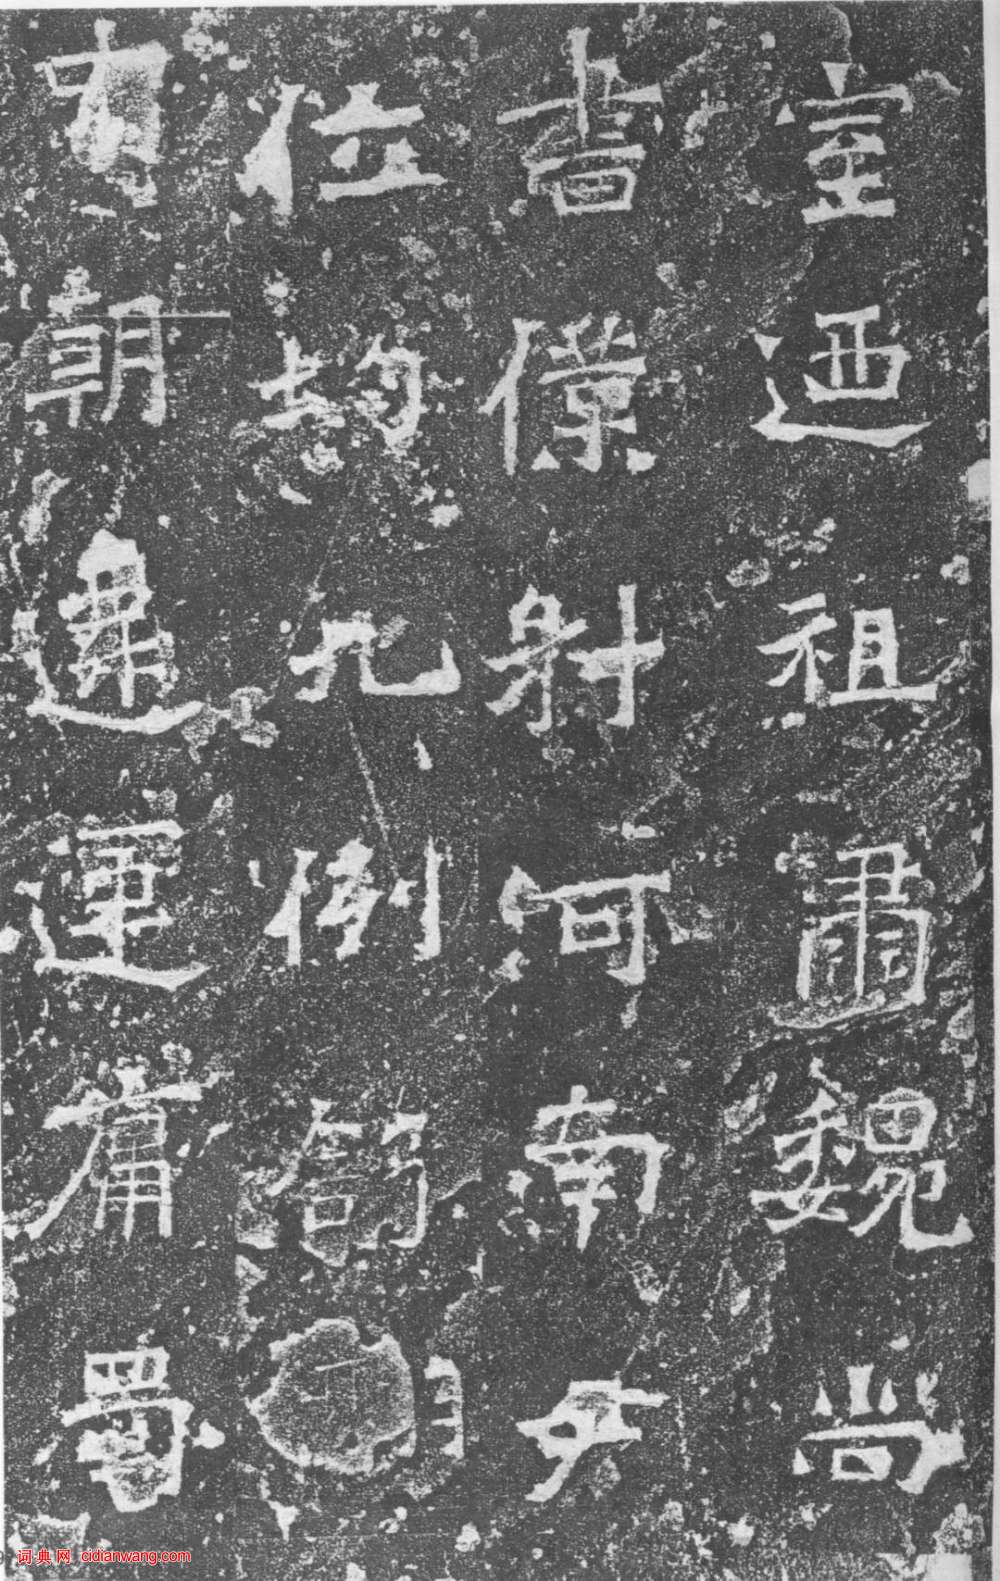 室迺祖肅魏尚
書僕射河南尹
位均九例
有朝建運庸蜀
词典网 cidianwang.com